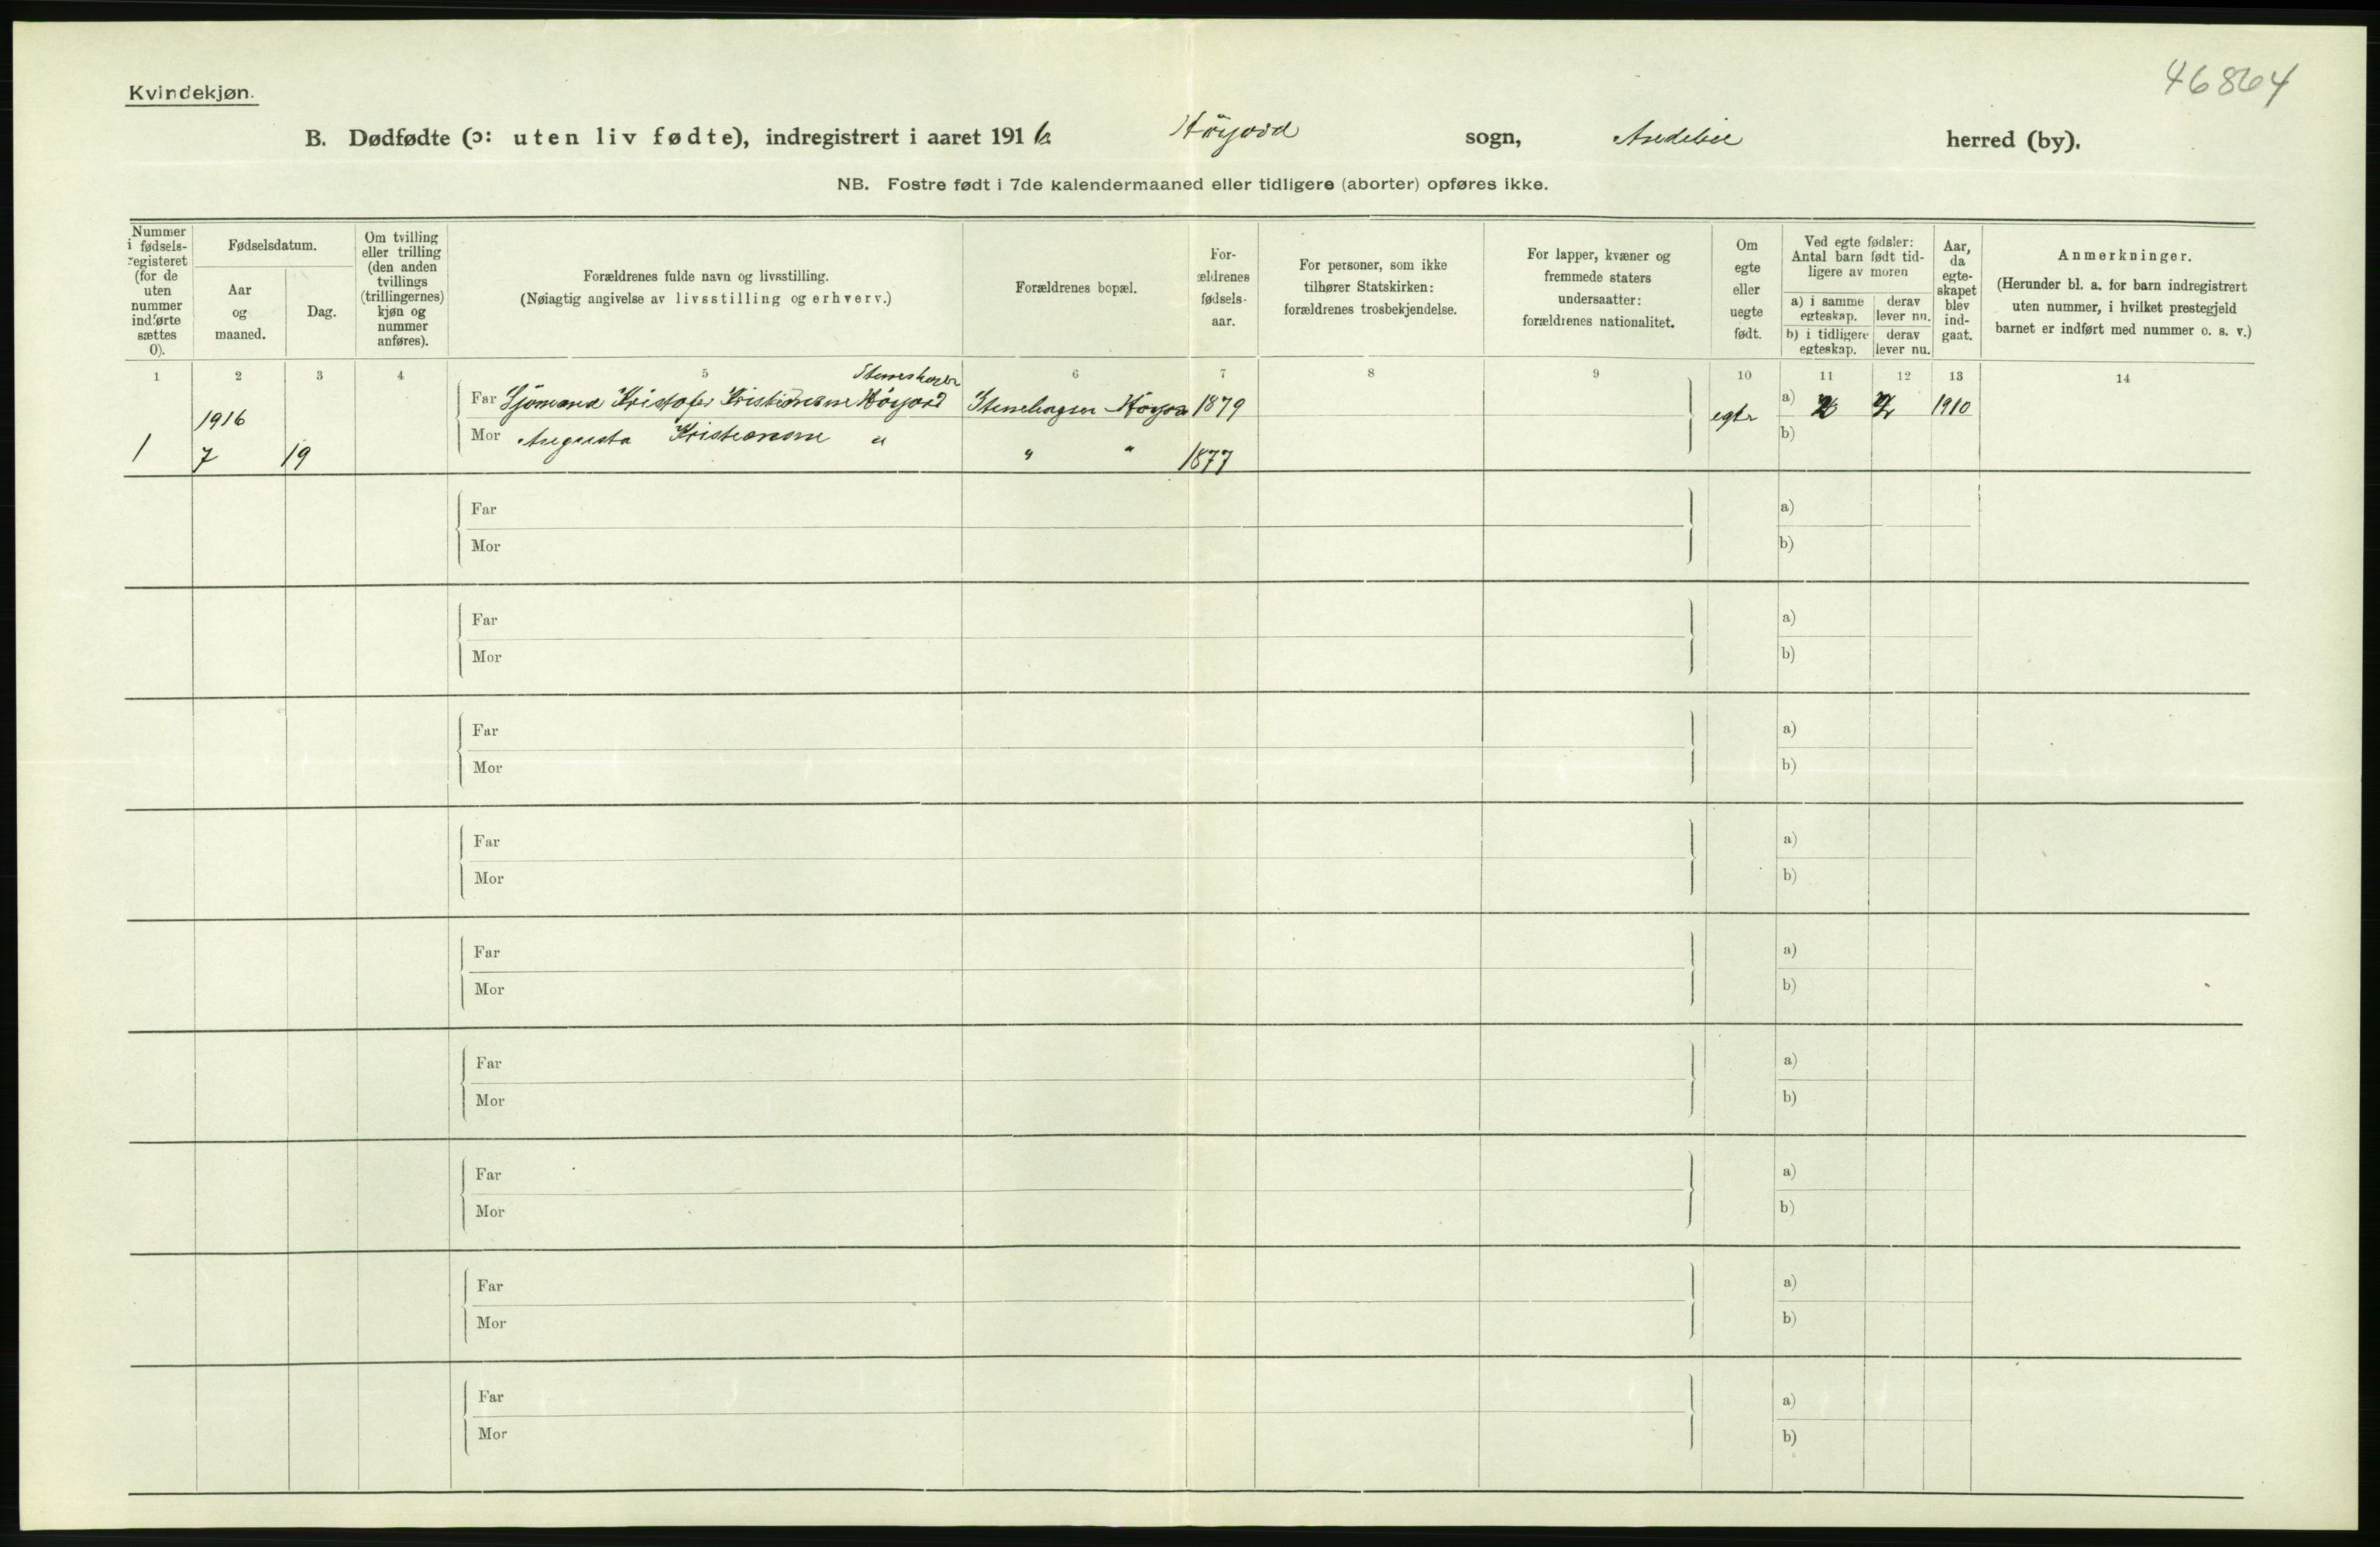 46864
Kvindekjøn.
B. Dødfødte (ɔ: uten liv fødte), indregistrert i aaret 1916 Höyjord sogn, Andebu herred (by).
NB. Fostre født i 7de kalendermaaned eller tidligere (aborter) opføres ikke.
Nummer
i fødsels-
registeret
(for de
uten
nummer
indførte
sættes
0).
Fødselsdatum.
Aar
og
maaned.
Dag.
Om tvilling
eller trilling
(den anden
tvillings
(trillingernes)
kjøn og
nummer
anføres).
Forældrenes fulde navn og livsstilling.
(Nøiagtig angivelse av livsstilling og erhverv.)
Forældrenes bopæl.
For-
ældrenes
fødsels-
aar.
For personer, som ikke
tilhører Statskirken:
forældrenes trosbekjendelse.
For lapper, kvæner og
fremmede staters
undersaatter:
forældrenes nationalitet.
Om
egte
eller
uegte
født.
Ved egte fødsler:
Antal barn født tid-
ligere av moren
a) i samme
egteskap.
derav
lever nu.
b) i tidligere
egteskap.
derav
lever nu.
Aar,
da
egte-
skapet
blev
ind-
gaat.
Anmerkninger.
(Herunder bl. a. for barn indregistrert
uten nummer, i hvilket prestegjeld
barnet er indført med nummer o. s. v.)
1 2 3 4 5 6 7 8 9 10 11 12 13 14
Far Sjömand Kristofer Kristiansen Höyjord 1879 egte a) 2 1910
1916
Mor Augusta Kristiansen " b)
1 7 19 " " 1877
Far a)
Mor b)
Far a)
Mor b)
Far a)
Mor b)
Far a)
Mor b)
Far a)
Mor b)
Far a)
Mor b)
Far a)
Mor b)
Far a)
Mor b)
Far a)
Mor b)